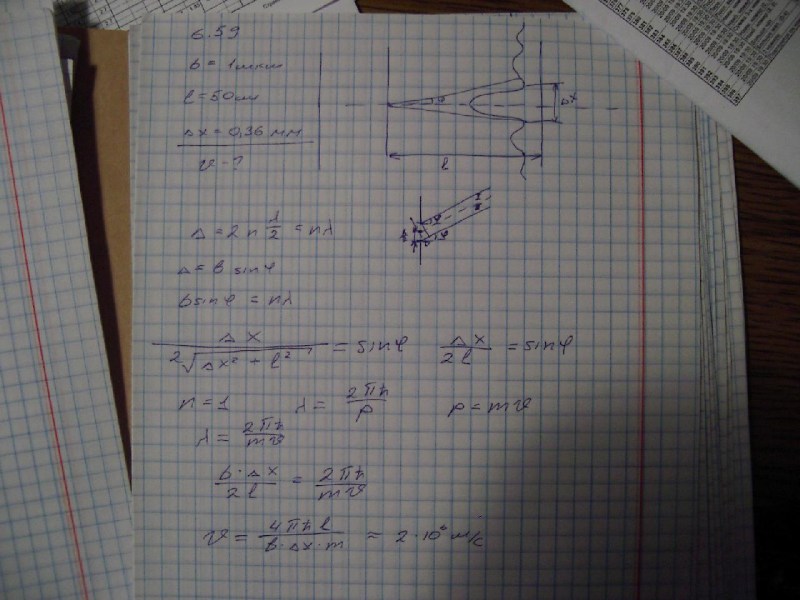 6.59
b = 1 мкм
l = 50 см
Δx = 0,36 мм
v - ?
φ
Δx
l
Δ = 2n λ/2 = nλ
Δ = b sinφ
b sinφ = nλ
Δx / 2√(Δx² + l²) = sinφ    Δx/2l = sinφ
n = 1    λ = 2πħ/p    p = mv
λ = 2πħ/mv
b·Δx/2l = 2πħ/mv
v = 4πħl/(b·Δx·m) ≈ 2·10⁶ м/с